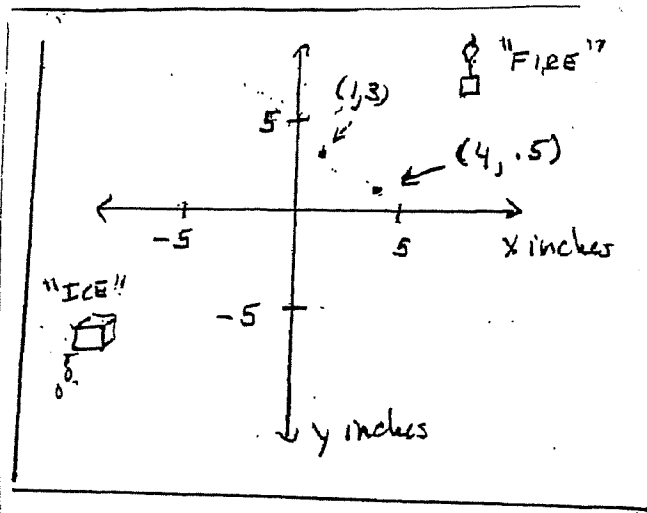 "FIRE"
(1,3)
5
(4, .5)
-5
5
x inches
"ICE"
-5
y inches